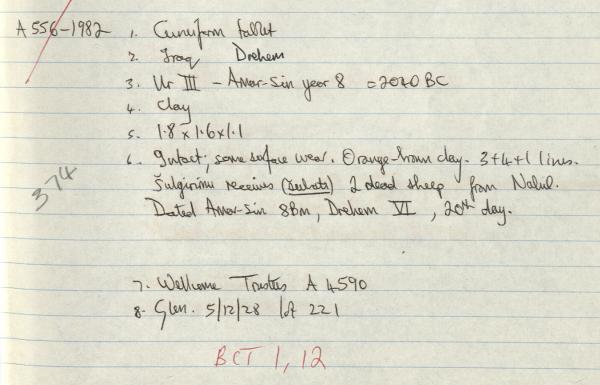 A 556-1982 1. Cuneiform tablet
2. Iraq Drehem
3. Ur III - Amar-Sin year 8 = 2040 BC
4. Clay
5. 1.8 x 1.6 x 1.1
6. Intact; some surface wear. Orange-brown clay. 3+4+1 lines.
Šulgirimu receives (šu ba-ti) 2 dead sheep from Nalul.
Dated Amar-Sin 8Bm, Drehem VI, 20th day.
374
7. Wellcome Trustees A 4590
8. Glen. 5/12/28 lot 221
BCT 1, 12